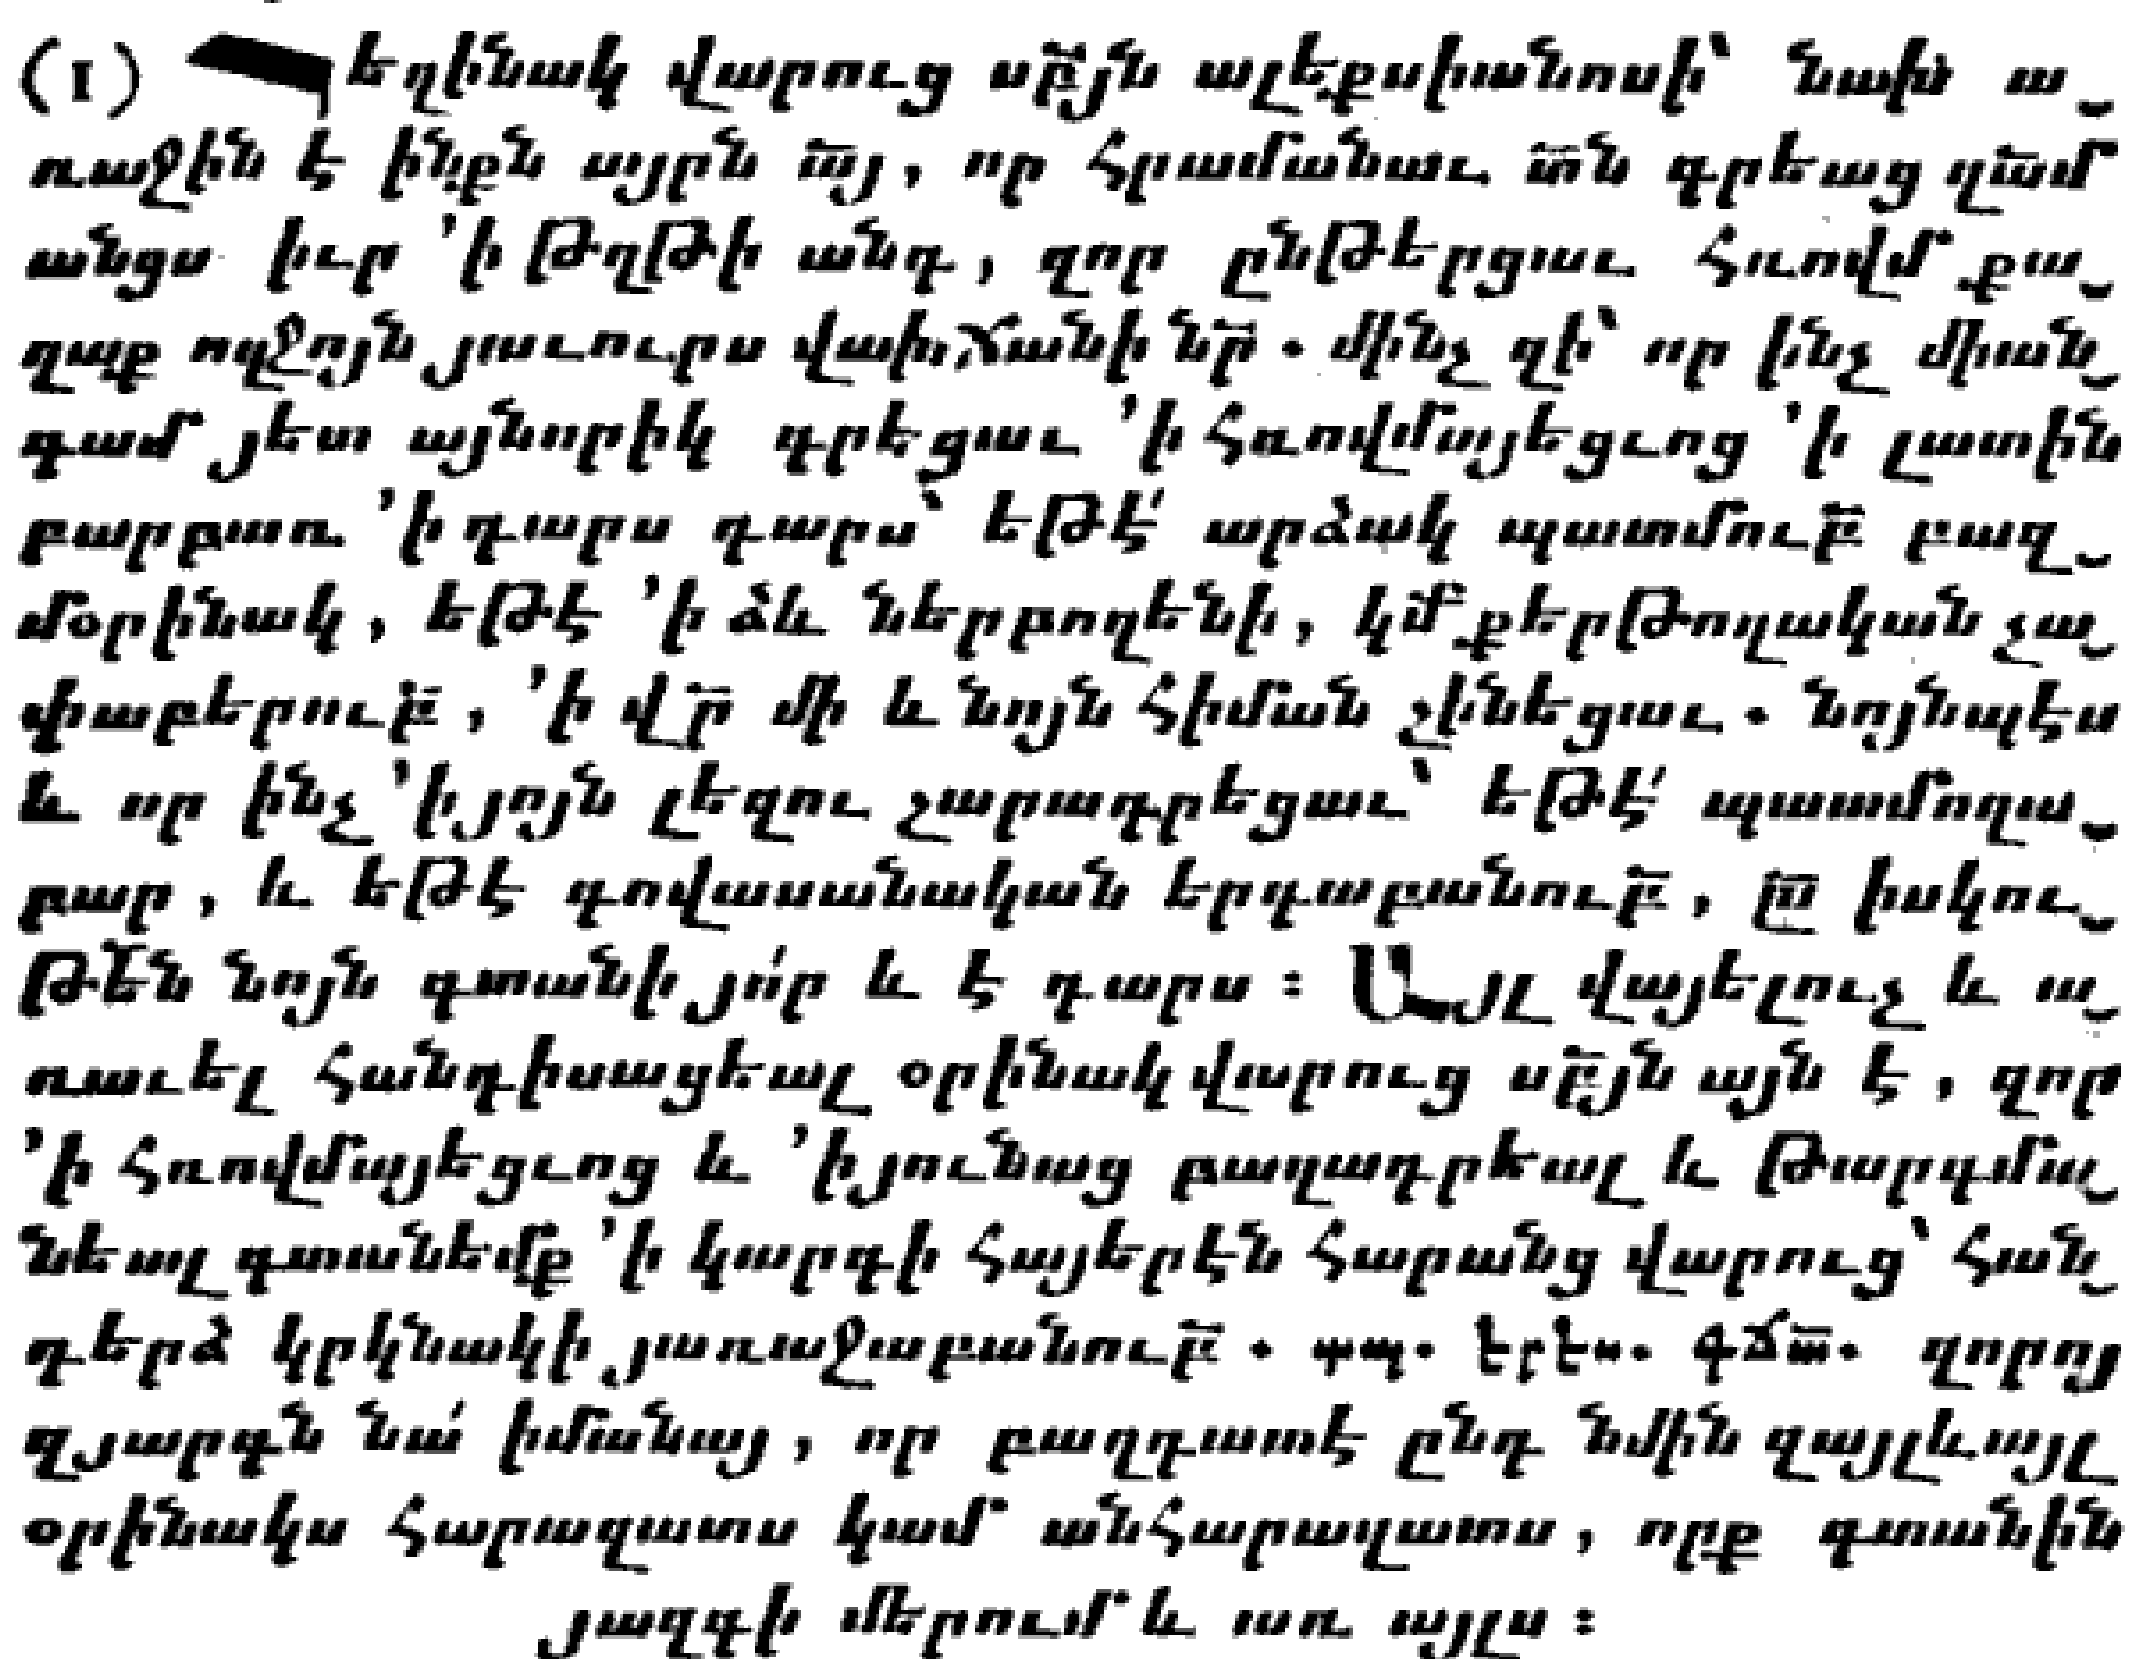 (1) Հեղինակ վարուց սր̃յն ալեքսիանոսի՝ նախ ա֊
ռաջին է ինքն այրն ա̃յ, որ հրամանաւ տ̃ն գրեաց զա̃մ
անցս իւր ՚ի թղթի անդ, զոր ընթերցաւ հռովմ քա֊
ղաք ողջոյն յաւուրս վախճանի նր̃. մինչ զի՝ որ ինչ միան֊
գամ յետ այնորիկ գրեցաւ ՚ի հռովմայեցւոց ՚ի լատին
բարբառ ՚ի դարս դարս՝ եթէ՛ արձակ պատմուբ̃ բազ֊
մօրինակ, եթէ ՚ի ձև ներբողենի, կմ̃ քերթողական չա֊
փաբերուբ̃, ՚ի վր̃ մի և նոյն հիման շինեցաւ. նոյնպէս
և որ ինչ ՚ի յոյն լեզու շարադրեցաւ՝ եթէ՛ պատմողա֊
բար, և եթէ գովասանական երգաբանուբ̃, ըստ իսկու֊
թե̃ն նոյն գտանի յո՛ր և է դարս։ Այլ վայելուչ և ա֊
ռաւել հանգիսացեալ օրինակ վարուց սր̃յն այն է, զոր
՚ի հռովմայեցւոց և ՚ի յունաց բաղադրեալ և թարգմա֊
նեալ գտանեմք ՚ի կարգի հայերէն հարանց վարուց՝ հան֊
դերձ կրկնակի յառաջաբանուբ̃. զորոյ
զյարգն նա՛ իմանայ, որ բաղդատէ ընդ նմին զայլևայլ
օրինակս հարազատս կամ անհարազատս, որք գտանին
յազգի մերում և առ այլս։